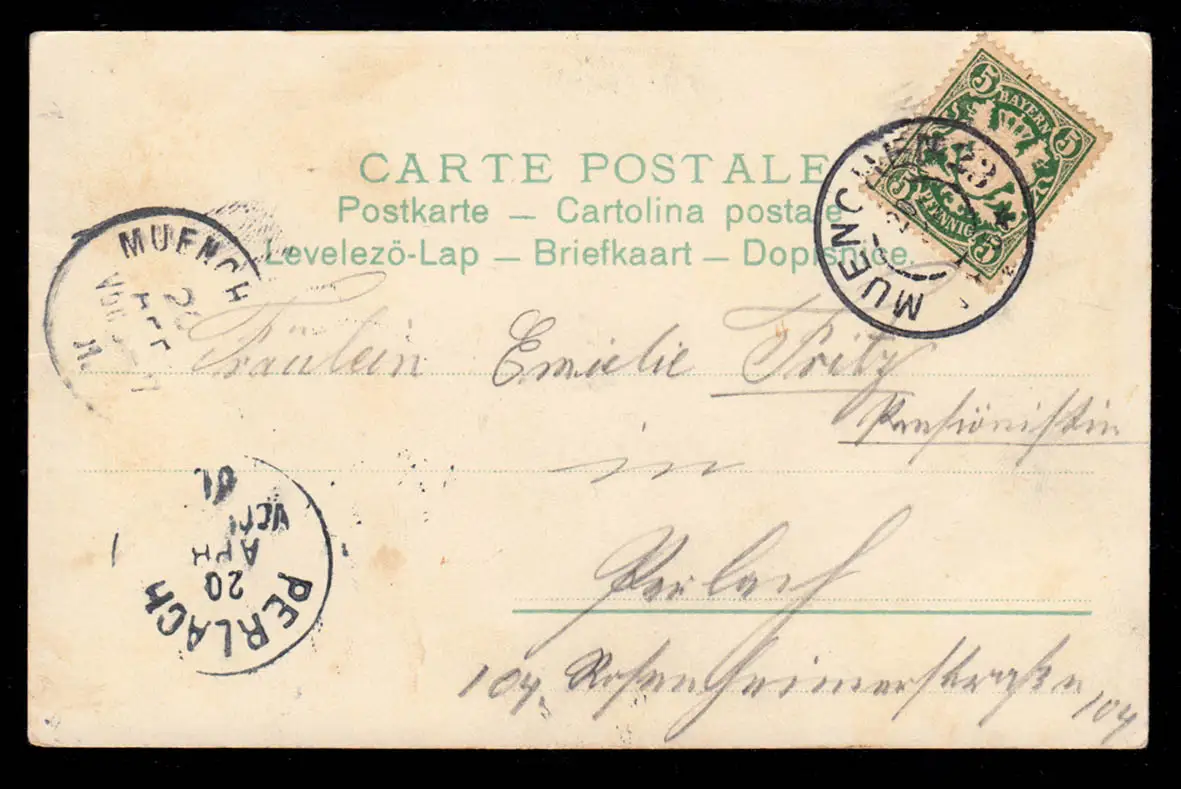 CARTE POSTALE
Postkarte — Cartolina postale
Levelezö-Lap — Briefkaart — Dopisnice.
5 BAYERN 5
5 PFENNIG 5
MUENCHEN 23
MUENCH
Fräulein Emilie Fritz
Pensionistin
in
Perlach
104, Rosenheimerstraße 104
PERLACH
20
APR
01